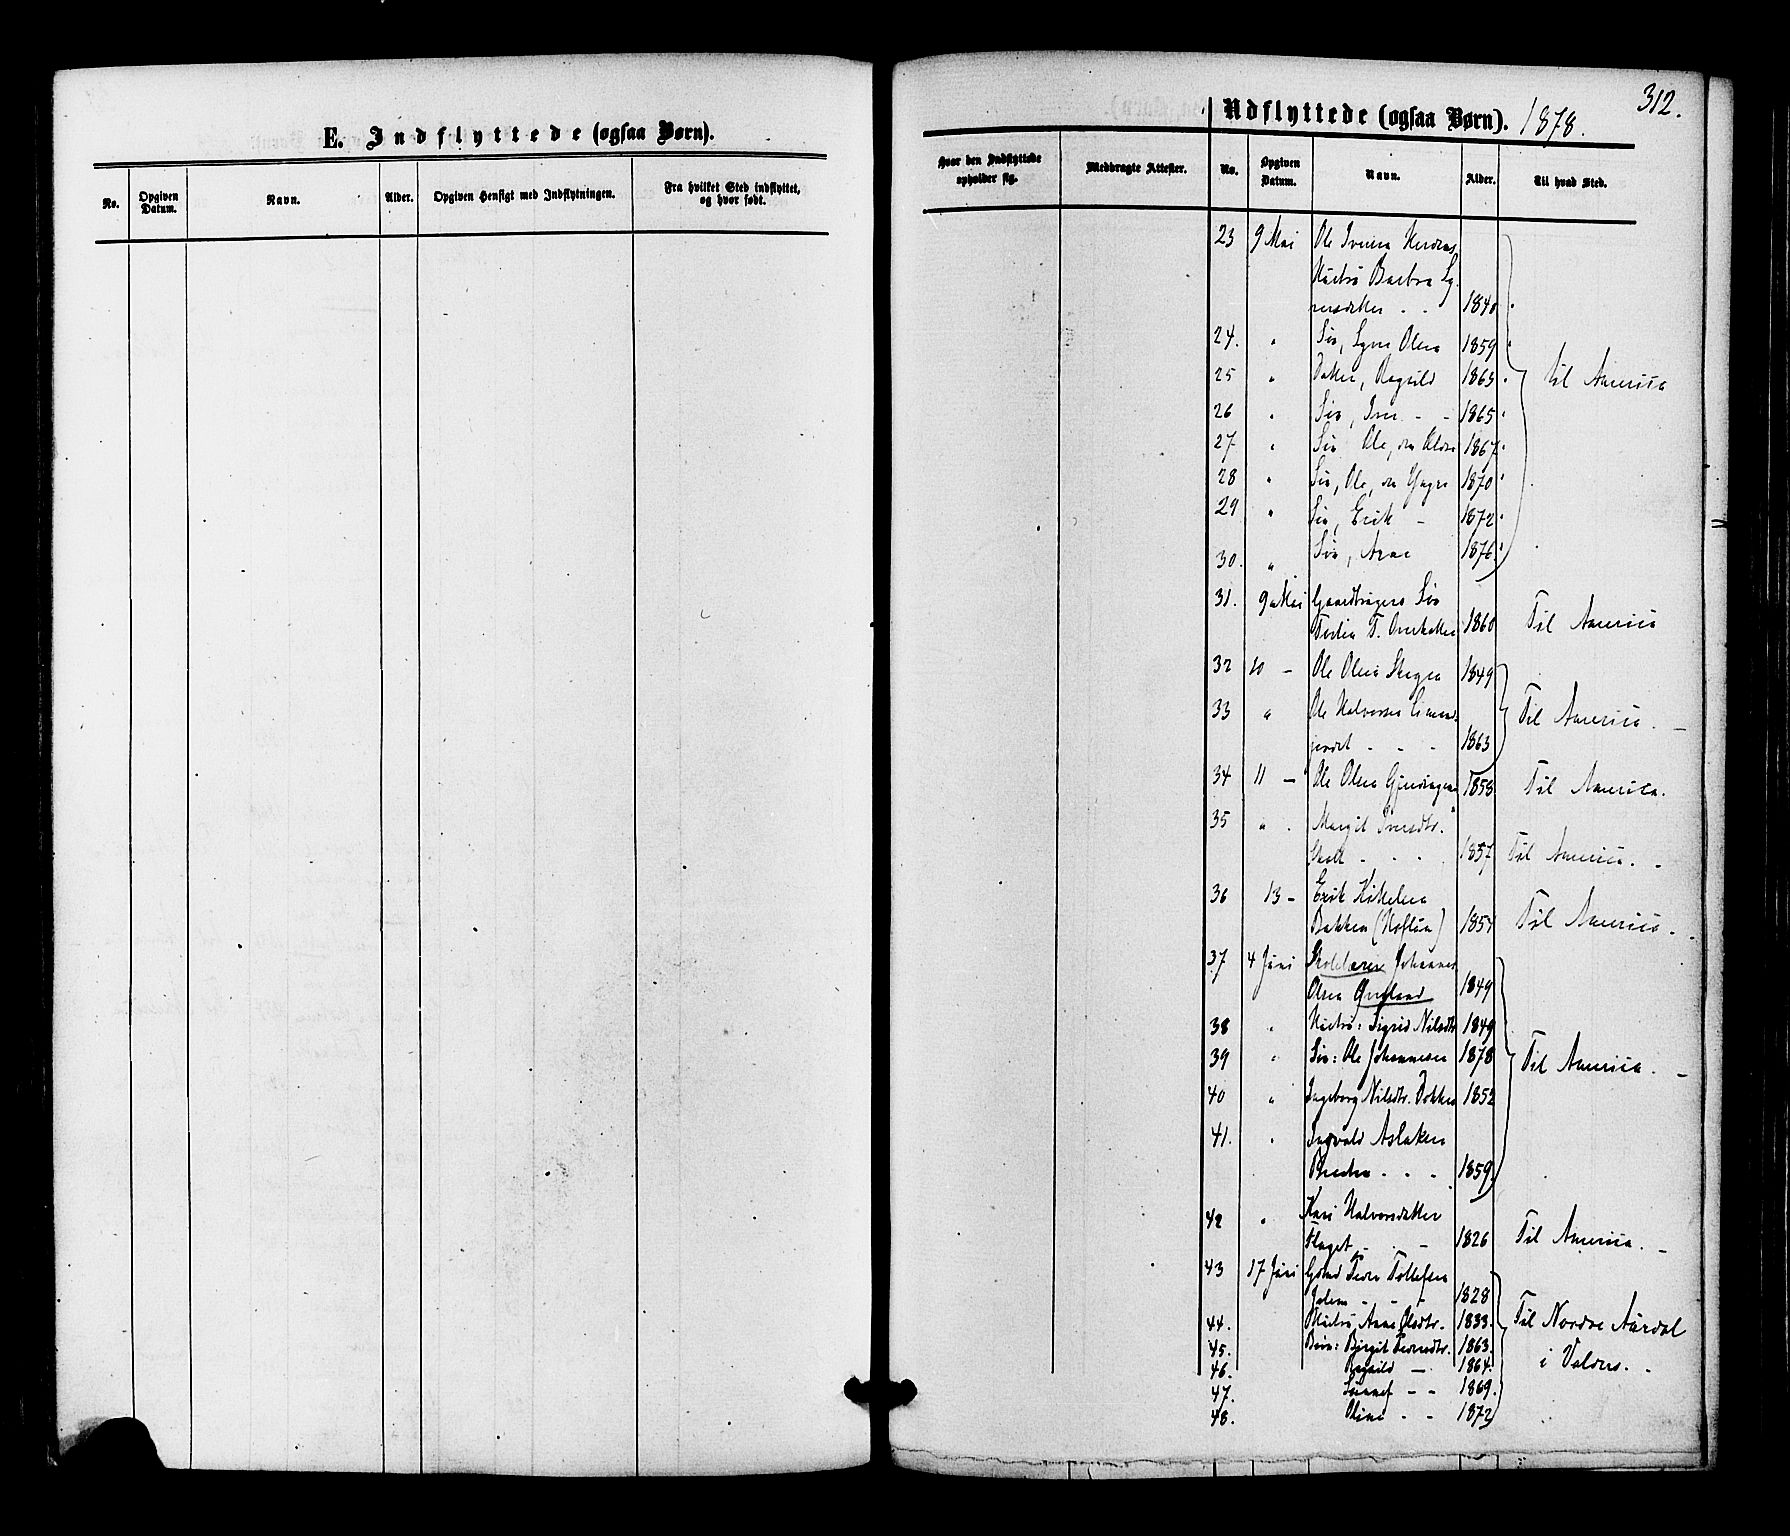 E. Indflyttede (ogsaa Børn).
No. Opgiven Datum. Navn. Alder. Opgiven Hensigt med Indflytningen. Fra hvilket Sted indflyttet, og hvor født.
312.
Udflyttede (ogsaa Børn). 1878.
Hvor den Indflyttede opholder sig. Medbragte Attester. No. Opgiven Datum. Navn. Alder. Til hvad Sted.
23 9 Mai Ole Iversen
Hustru Barbra
1840
24. " Søn, Ole Olsen 1859
25 " Datter, Ragnild 1863
26 " Søn, Iver - - 1865
27 " Søn Ole, den Eldre 1867
28 " Søn, Ole, den Yngre 1870
29 " Søn, Erik - 1872
30. " Søn, Arne 1876
Til America
31. 9 Mai Gaardbrugers Søn
T. 1860 Til America
32 10 - Ole Olsen Skogen 1849
33 " Ole Halvorsen
jordet - - - 1863
Til America. -
34 11 - Ole Olsen 1858 Til America.
35 " Margit Iversdtr.
1857 Til America. -
36 13 - Erik Kittelsen
Bakken 1857 Til America.
37 4 Juni Skolelærer Johannes
Olsen 1849
38 " Hustru: Sigrid Nilsdtr 1849
39 " Søn: Ole Johannesen 1878
Til America. -
40 " Ingeborg Nilsdtr. Dokken 1852
41. " Ingvald Aslaksen
1859
42 " Kari Halvorsdatter
Flaget - - 1826 Til America. -
43 17 Juni Tollefsen
1828
44. Hustru, Anne Olsdtr. 1833.
Til Nordre Aurdal
45. Børn: Birgit 1863
i Valders. -
46. Ragnild - 1864.
47. Sünnef - - 1869.
48. Oline - - 1872